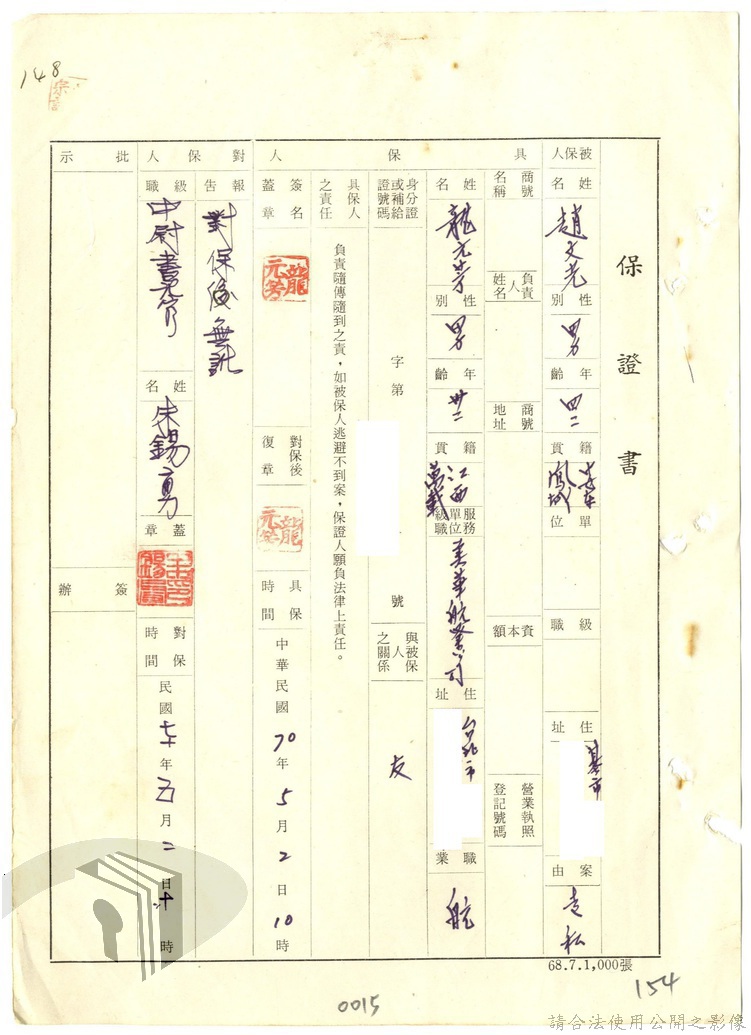 148
保證書
被保人
姓名 趙文光
性別 男
年齡 四二
籍貫 遼東鳳城
單位
級職
住址 基市
案由 走私
具保人
商號名稱
負責人姓名
商號地址
資本額
營業執照登記號碼
姓名 龍元芳
性別 男
年齡 卅二
籍貫 江西萬載
服務單位級職
住址 台北市
職業 航
身分證或補給證號碼 字第 號
與被保人之關係 友
具保人之責任 負責隨傳隨到之責,如被保人逃避不到案,保證人願負法律上責任。
簽名蓋章 龍元芳
對保後復章 龍元芳
具保時間 中華民國70年5月2日10時
對保人
報告 對保後無訛
級職 中尉書記官
姓名 朱錫勇
蓋章
對保時間 民國七十年五月二日十時
批示
簽辦
68.7.1,000張
154
0015
請合法使用公開之影像